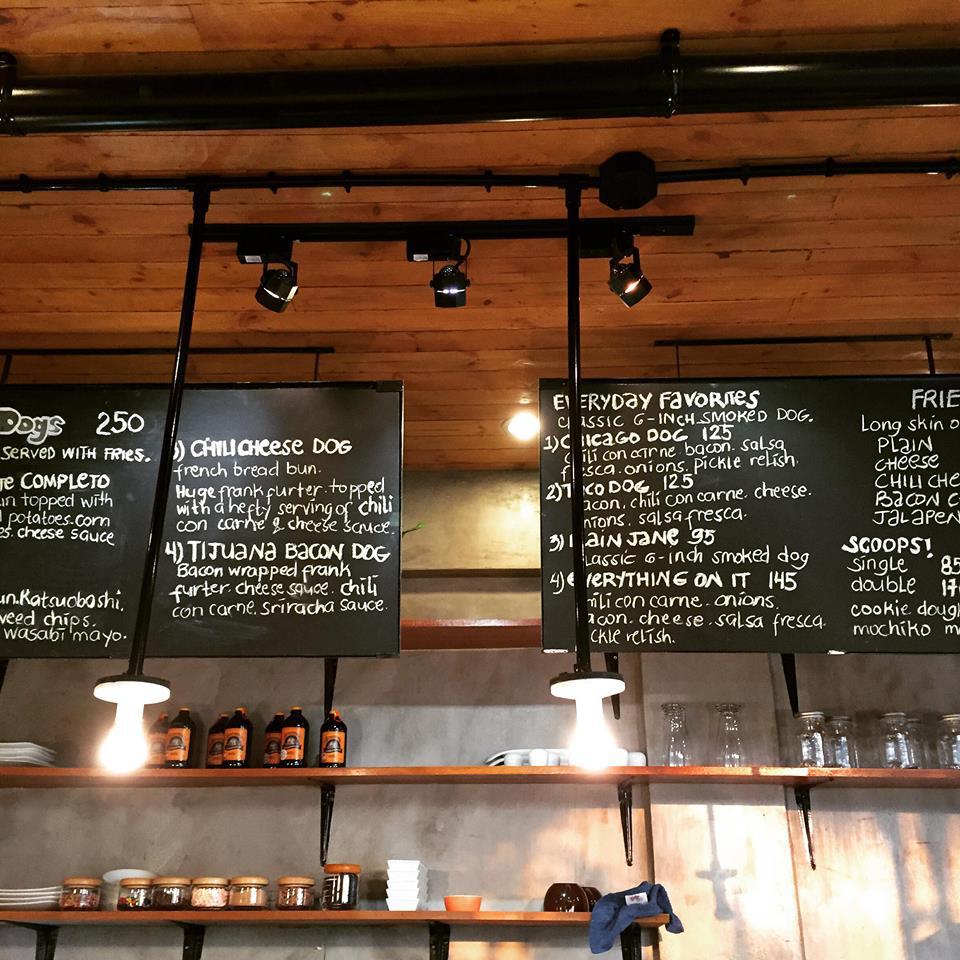 Dogs 250
SERVED WITH FRIES.
COMPLETO
topped with
potatoes.corn
cheese sauce
Katsuobashi.
chips.
wasabi mayo.
CHILI CHEESE DOG
french bread bun.
Huge frankfurter. topped
with a hefty serving of chili
con carne & cheese sauce.
4) TIJUANA BACON DOG
Bacon wrapped frank
furter. cheese sauce. chili
con carne. sriracha sauce.
EVERYDAY FAVORITES
CLASSIC 6-INCH SMOKED DOG.
1) CHICAGO DOG 125
chili con carne. bacon. salsa
fresca. onions. pickle relish.
2) TACO DOG 125
bacon. chili con carne. cheese.
onions. salsa fresca.
3) PLAIN JANE 95
classic 6-inch smoked dog
4) EVERYTHING ON IT 145
chili con carne. onions.
bacon. cheese. salsa fresca.
pickle relish.
Long skin
PLAIN
CHEESE
CHILI
BACON
SCOOPS!
single
double
cookie
mochiko